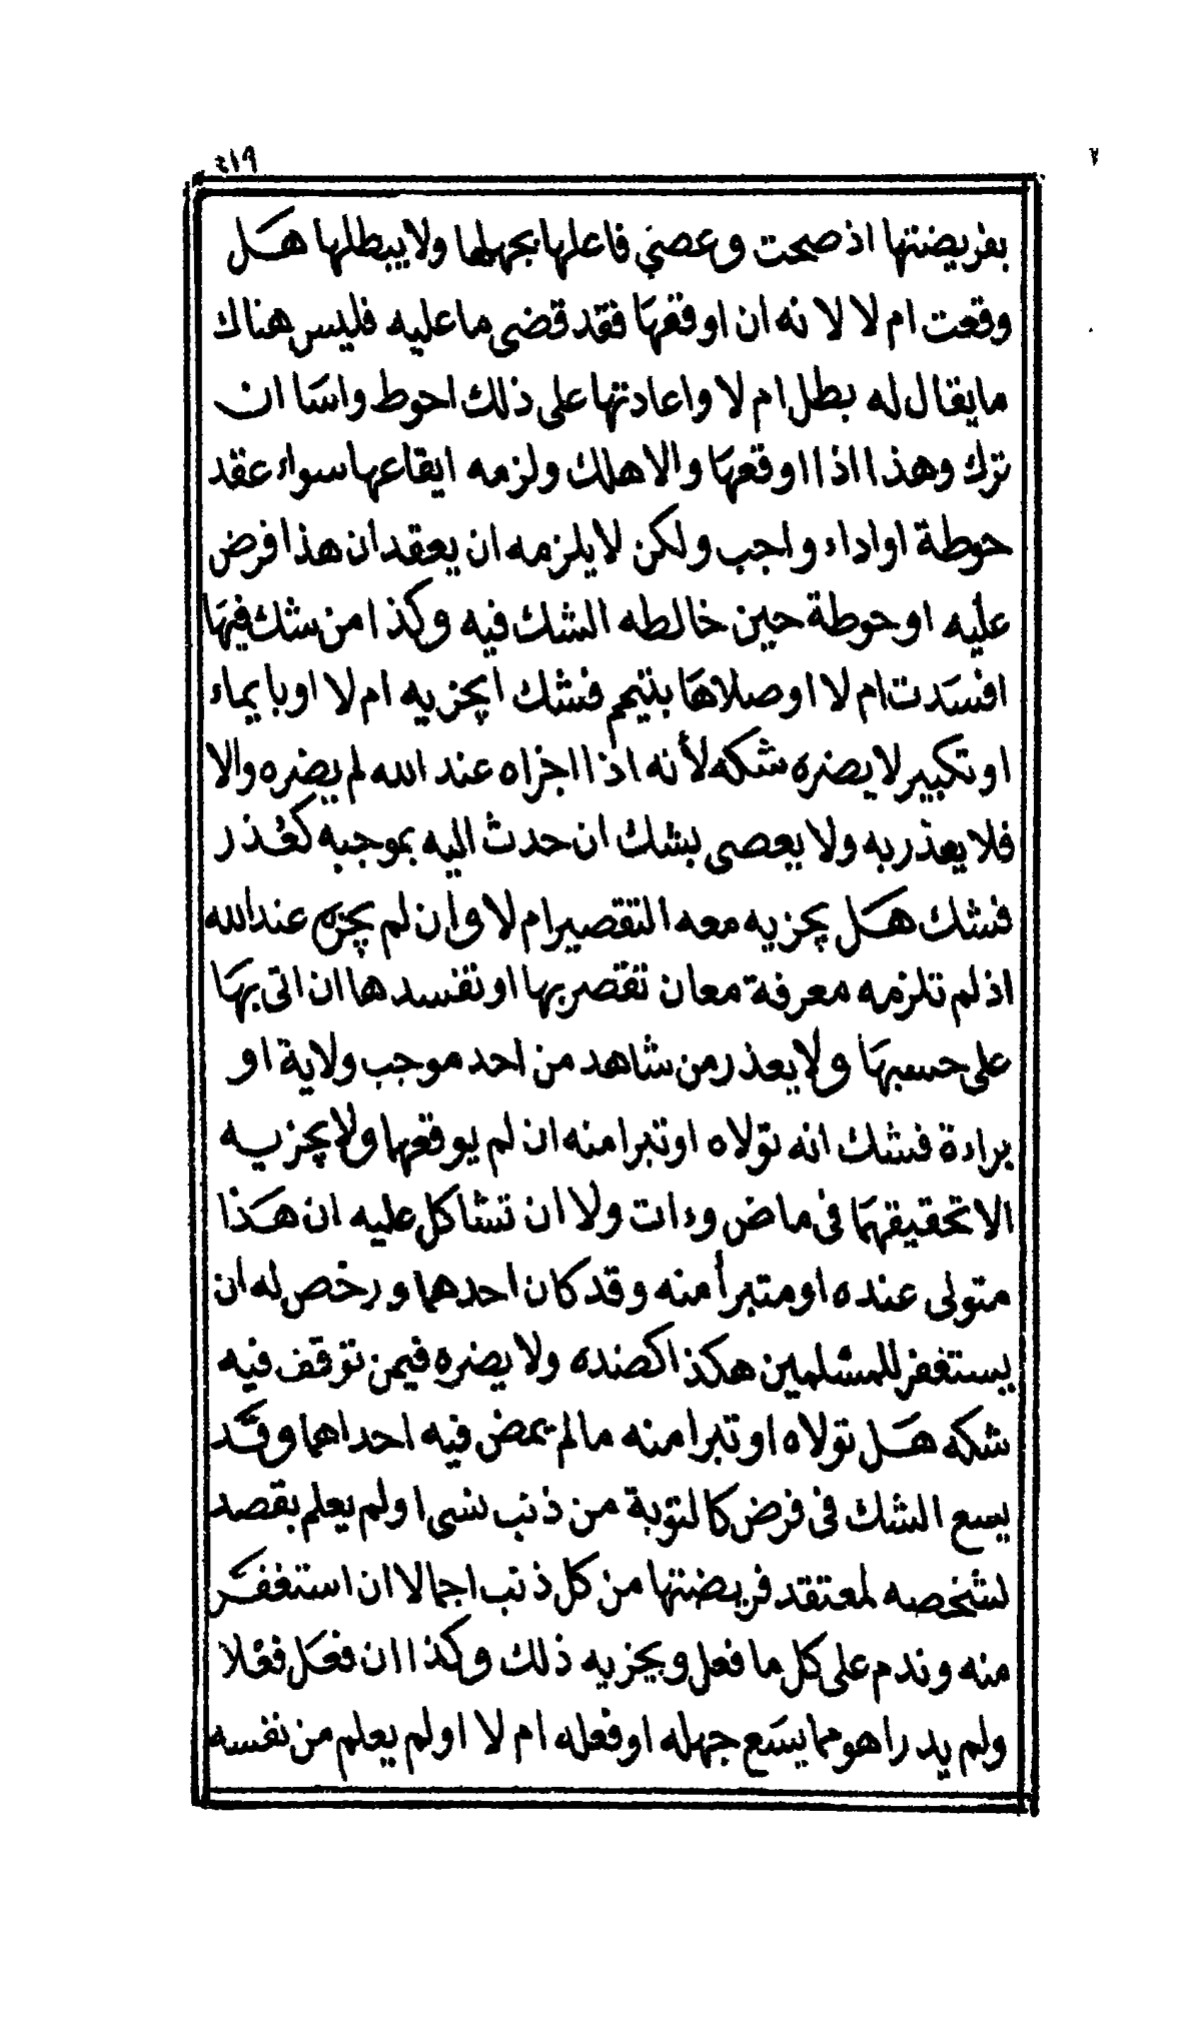 ٤١٩
٧
بفريضتها اذ صحت وعصي فاعلها بجهلها ولا يبطلها هل
وقعت ام لا لا نه ان اوقعها فقد قضى ما عليه فليس هناك
ما يقال له بطل ام لا واعادتها على ذلك احوط واسا ان
ترك وهذا اذا اوقعها والا هلك ولزمه ايقاعها سواء عقد
حوطة او اداء واجب ولكن لا يلزمه ان يعقد ان هذا فرض
عليه او حوطة حين خالطه الشك فيه وكذا من شك فيها
افسدت ام لا او صلاها بتيمم فشك ايجزيه ام لا او بايماء
او تكبير لا يضره شكه لأنه اذا اجزاه عند الله لم يضره والا
فلا يعذر به ولا يعصى بشك ان حدث اليه بموجبه كعذر
فشك هل يجزيه معه التقصير ام لا وان لم يجزه عند الله
اذ لم تلزمه معرفة معان تقصر بها او تفسدها ان اتى بها
على حسبها ولا يعذر من شاهد من احد موجب ولاية او
براءة فشك انه تولاه او تبرا منه ان لم يوقعها ولا يجزيه
الا تحقيقهما في ماض وءات ولا ان تشاكل عليه ان هذا
متولى عنده او متبرأ منه وقد كان احدهما ورخص له ان
يستغفر للمسلمين هكذا كضده ولا يضره فيمن توقف فيه
شكه هل تولاه او تبرا منه ما لم يمض فيه احداهما وقد
يسع الشك في فرض كالتوبة من ذنب نسي او لم يعلم بقصد
لشخصه لمعتقد فريضتها من كل ذنب اجمالا ان استغفر
منه وندم على كل ما فعل ويجزيه ذلك وكذا ان فعل فعلا
ولم يدر اهو مما يسع جهله او فعله ام لا او لم يعلم من نفسه